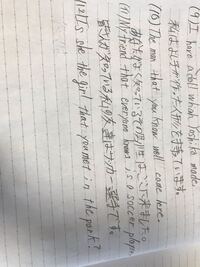 (9) I have a doll which Yoshiko made.
私はよし子が作った人形を持っています。
(10) The man that you know well came here.
あなたがよく知っている男の人はここに来ました。
(11) My friend that everyone knows is a soccer player.
皆が知っている私の友達はサッカー選手です。
(12) Is she the girl that you met in the park?